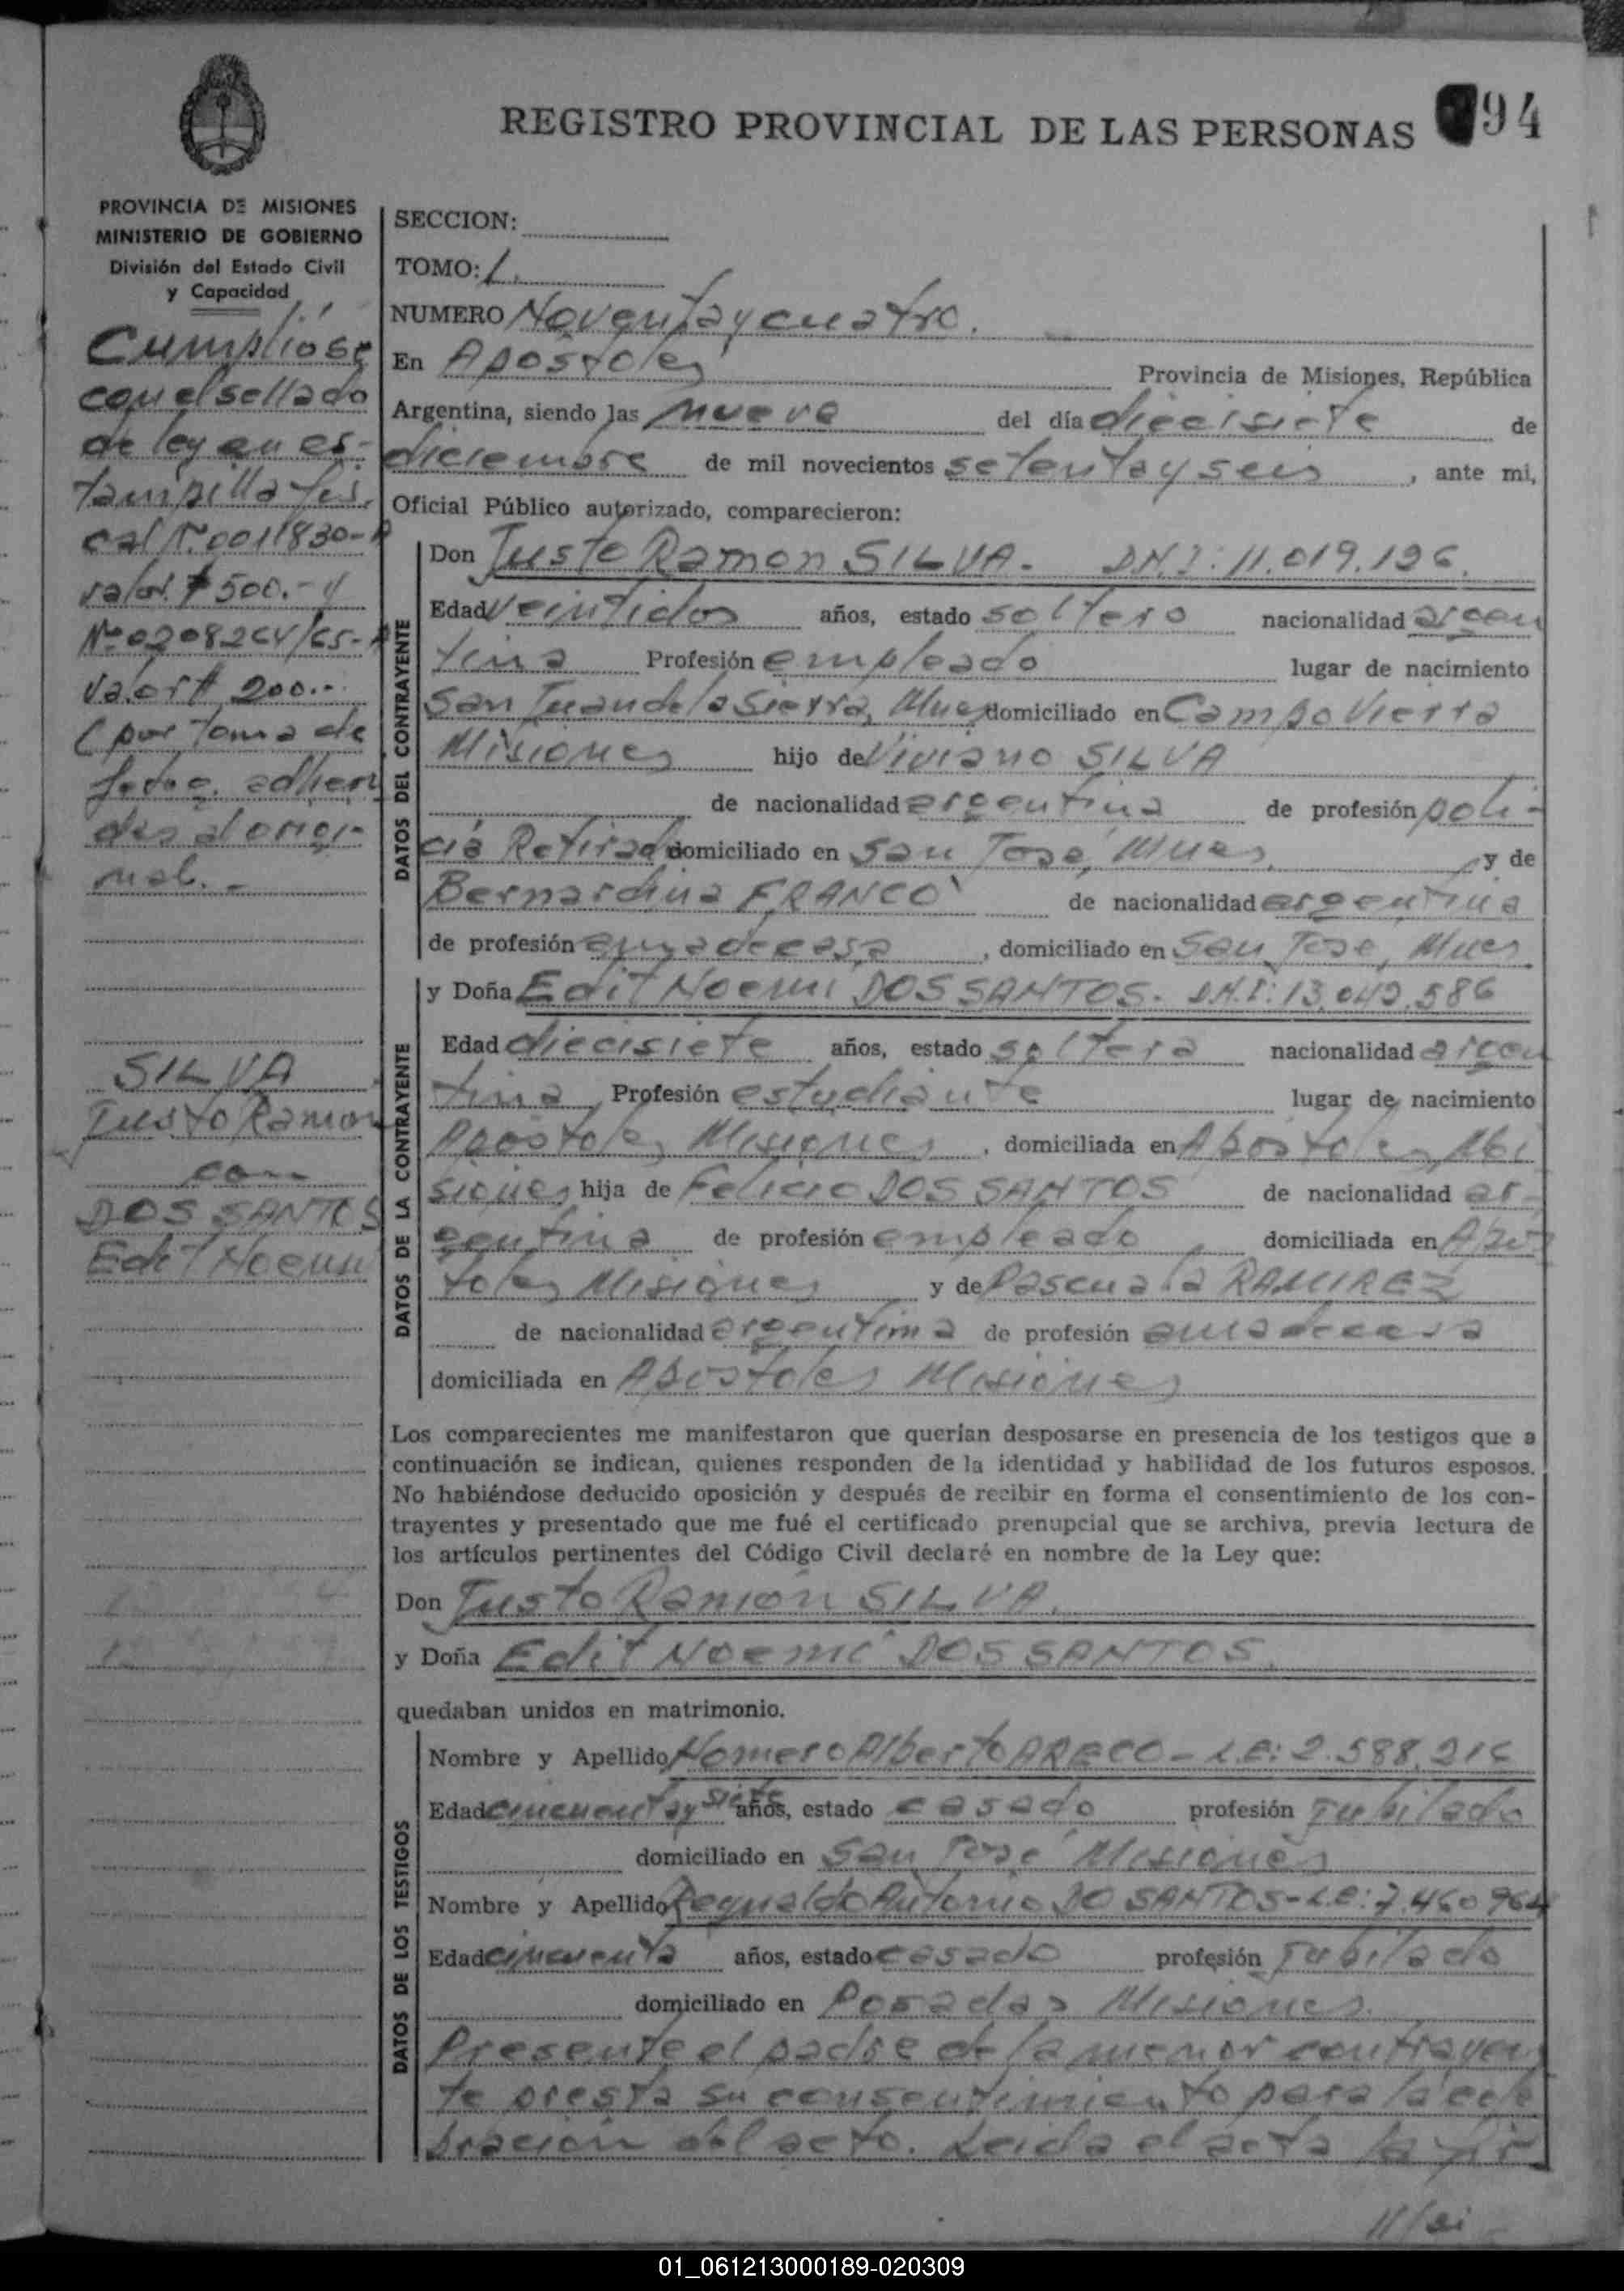 REGISTRO PROVINCIAL DE LAS PERSONAS 94
PROVINCIA DE MISIONES
MINISTERIO DE GOBIERNO
División del Estado Civil
y Capacidad
Cumplióse
con el sellado
de ley en es-
tampilla fis.
cal N° 0011830-A
valor $ 500.- y
N° 0208264/65-A
valor $ 200.-
(por toma de
fotoc. adheri
das al origi-
nal.-
SILVA
Justo Ramon
con
DOS SANTOS
Edit Noemi
SECCION:
TOMO: 1.
NUMERO Noventa y cuatro.
En Apóstoles Provincia de Misiones, República
Argentina, siendo las nueve del día diecisiete de
diciembre de mil novecientos setenta y seis, ante mi,
Oficial Público autorizado, comparecieron:
DATOS DEL CONTRAYENTE
Don Justo Ramon SILVA.- D.N.I: 11.019.196.
Edad veintidos años, estado soltero nacionalidad argen
tina Profesión empleado lugar de nacimiento
San Juan de la Sierra, Mnes domiciliado en Campo Vierra
Misiones hijo de Viviano SILVA
de nacionalidad argentina de profesión poli-
cia Retirado domiciliado en San José, Mnes, y de
Bernardina FRANCO de nacionalidad argentina
de profesión ama de casa, domiciliado en San José, Mnes
DATOS DE LA CONTRAYENTE
y Doña Edit Noemi DOS SANTOS. D.N.I: 13.042.586
Edad diecisiete años, estado soltera nacionalidad argen
tina, Profesión estudiante lugar de nacimiento
Apóstoles Misiones, domiciliada en Apóstoles Mi
siones hija de Felicio DOS SANTOS de nacionalidad ar-
gentina de profesión empleado domiciliada en Após
toles Misiones y de Pascuala RAMIREZ
de nacionalidad argentina de profesión ama de casa
domiciliada en Apóstoles Misiones
Los comparecientes me manifestaron que querían desposarse en presencia de los testigos que a
continuación se indican, quienes responden de la identidad y habilidad de los futuros esposos.
No habiéndose deducido oposición y después de recibir en forma el consentimiento de los con-
trayentes y presentado que me fué el certificado prenupcial que se archiva, previa lectura de
los artículos pertinentes del Código Civil declaré en nombre de la Ley que:
Don Justo Ramón SILVA.
y Doña Edit Noemí DOS SANTOS.
quedaban unidos en matrimonio.
DATOS DE LOS TESTIGOS
Nombre y Apellido Homero Alberto ARECO - L.E: 2.588.216
Edad cincuenta y siete años, estado casado profesión Jubilado
domiciliado en San José Misiones
Nombre y Apellido Reynaldo Antonio DO SANTOS - L.E: 7.460964
Edad cincuenta años, estado casado profesión Jubilado
domiciliado en Posadas Misiones.
Presente el padre de la menor contrayen
te presta su consentimiento para la cele
bración del acto. Leida el acta la fir
01_061213000189-020309